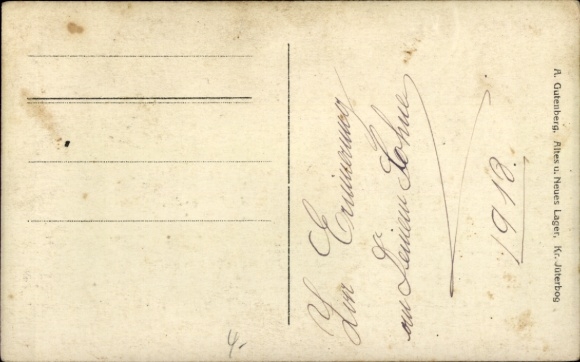 Zur Erinnerung
an Deinen Sohne
1918.
A. Gutenberg, Altes u. Neues Lager, Kr. Jüterbog
4.-